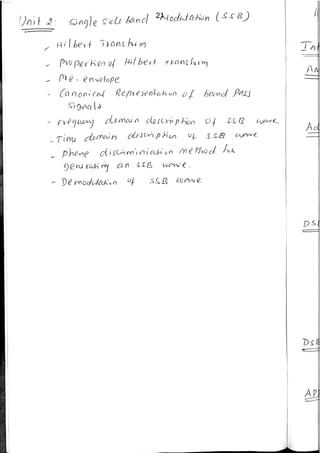 Unit 2: Single Side band Modulation (SSB)
- Hilbert Transform
- Properties of Hilbert transform
- Pre-envelope
- Canonical Representation of band Pass
Signals
- Frequency domain description of SSB wave
- Time domain description of SSB wave
- phase discrimination method for
generating an SSB wave.
- Demodulation of SSB wave